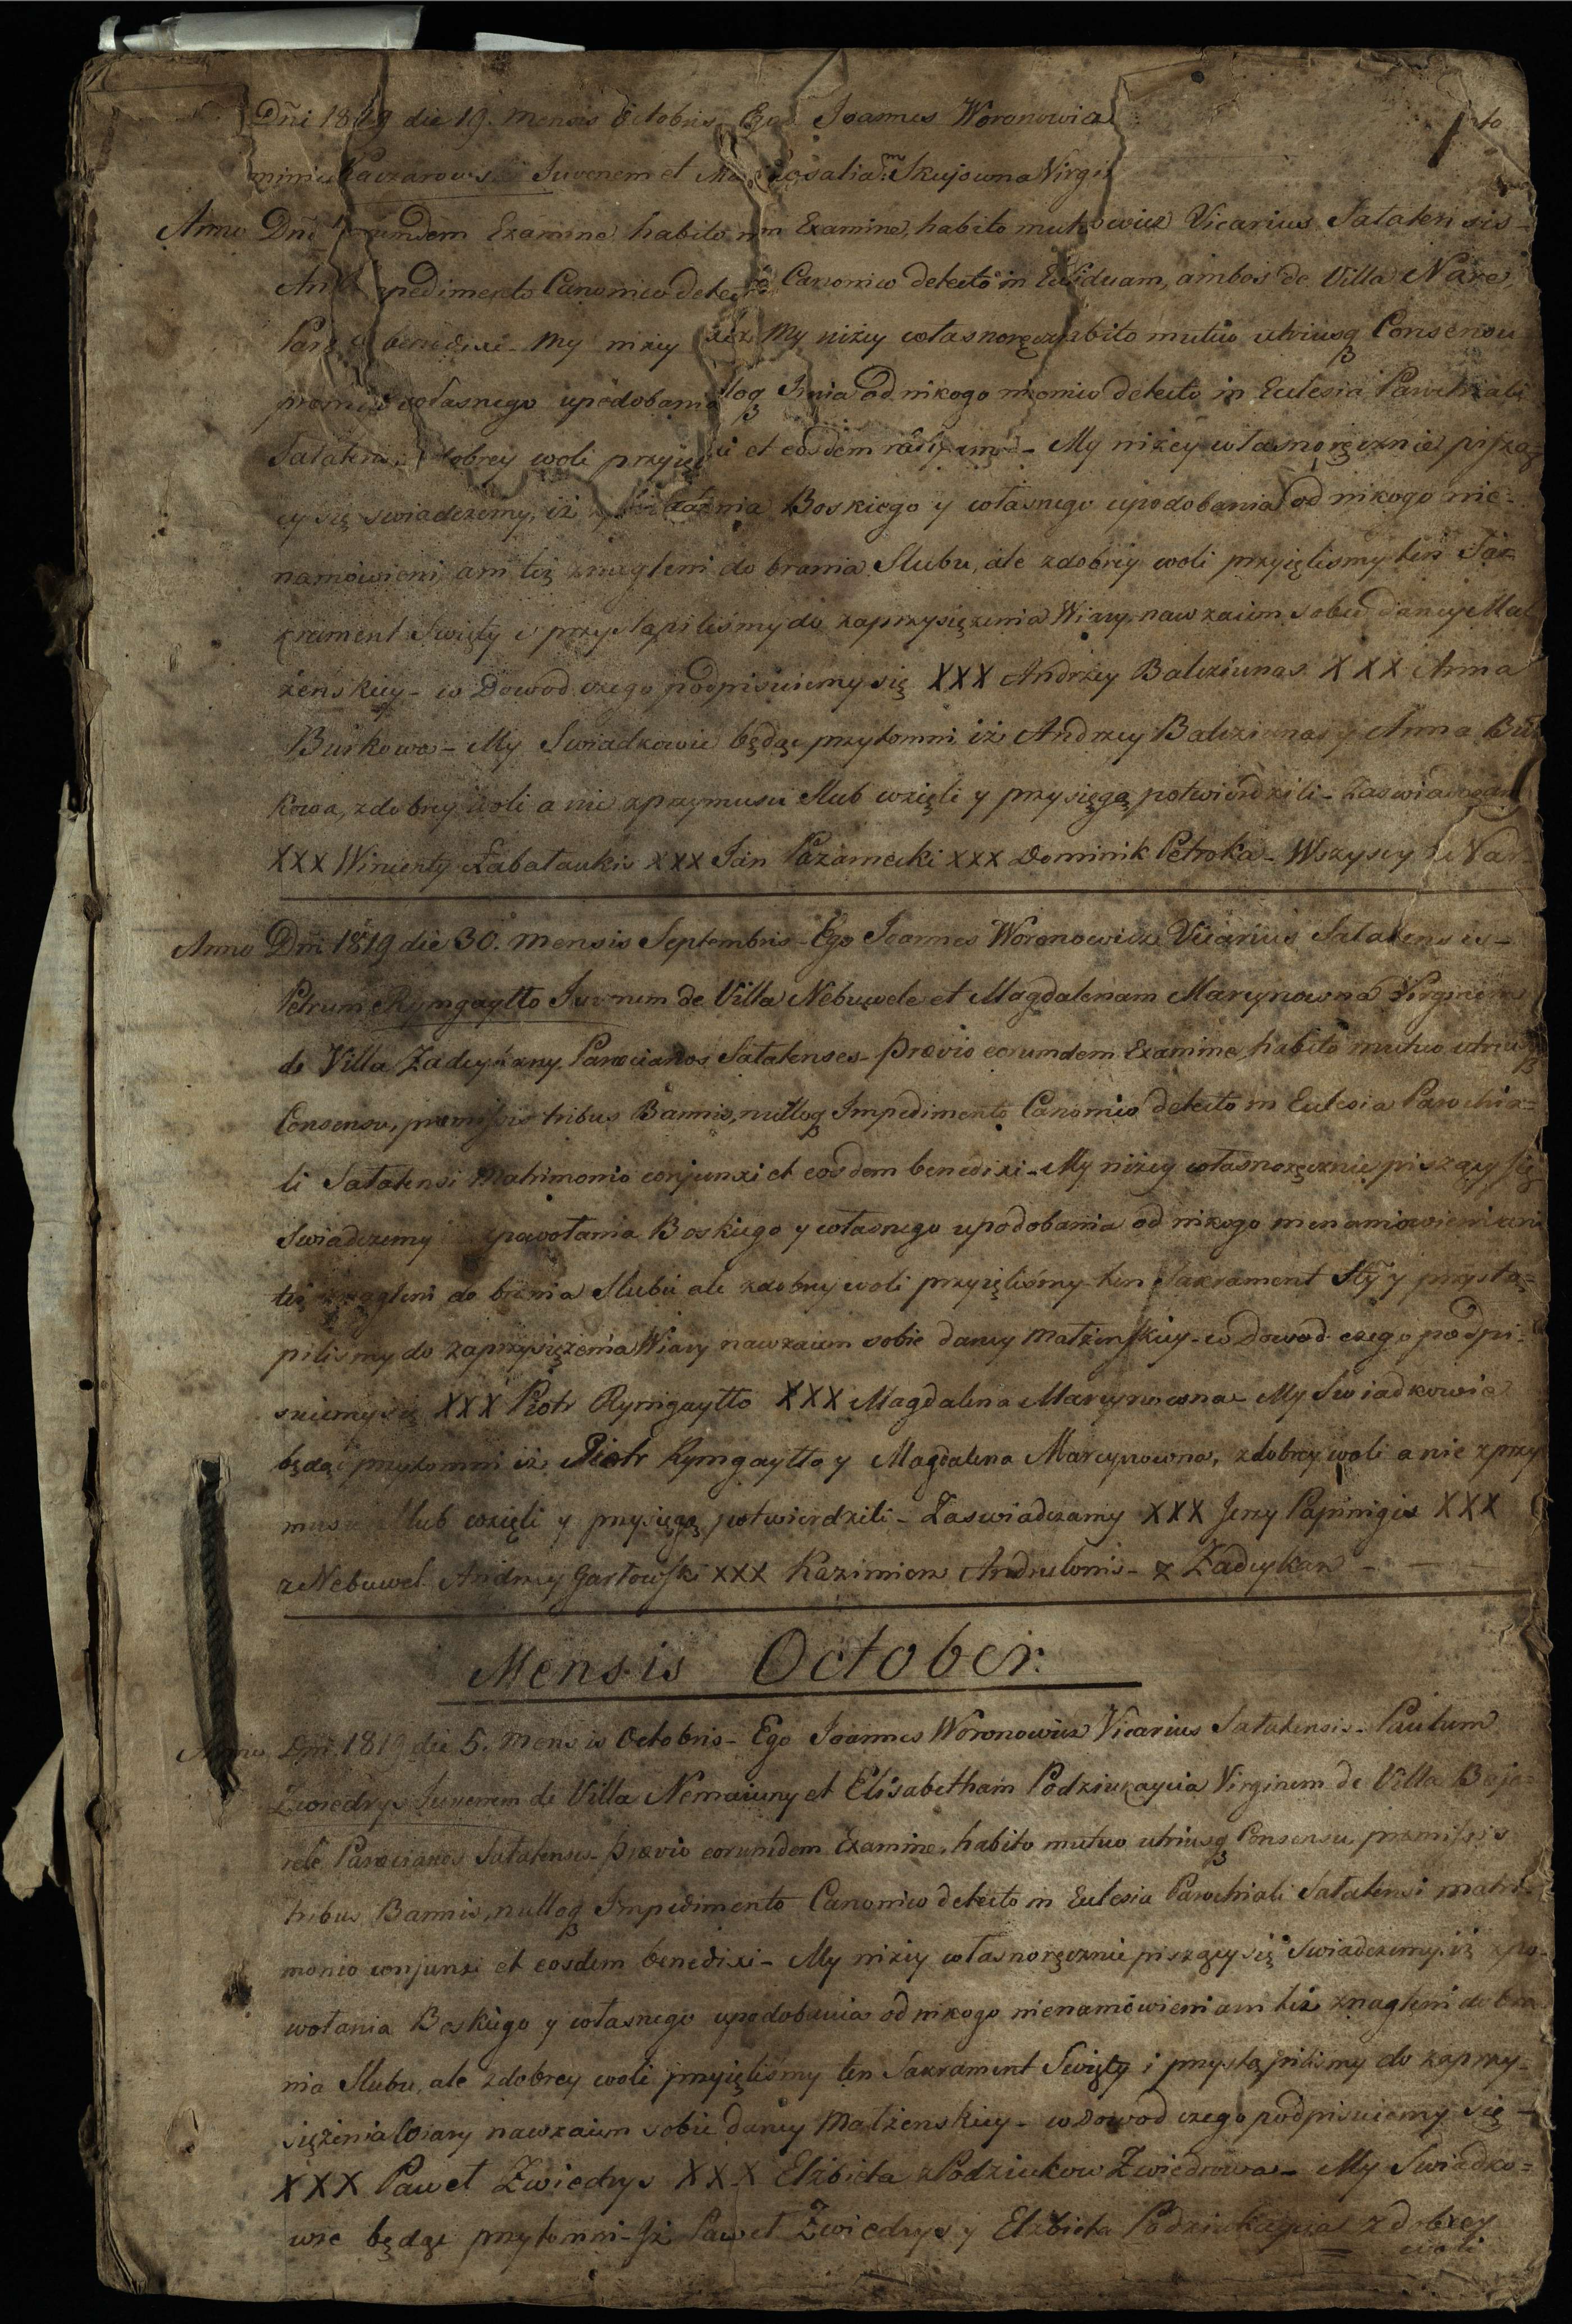 Dñi 1819 die 19. Mensis Octobris Ego Joannes Woronowicz
Juvenem et Rosaliam Skujowna Virgi
Anno Dñi eorumdem Examine, habito Examine, habito mutu owicz Vicarius Satatensis-
pedimento Canonico detec Canonico detecto in Viduam, ambos de Villa Nare
benedixi- My niżey My niżey własnoręcz habito mutuo utriusq Consensu
własnego upodobania od nikogo nonico detecto in Eclesia Parochiali
Sataten dobrey woli przyię et eosdem - My niżey własnoręcznie piszą=
cy się swiadczemy, iż Boskiego y własnego upodobania od nikogo nie-
namówieni, ani też znagleni do brania Slubu, ale zdobrey woli przyięlismy ten Sa-
krament Swięty i przystąpiliśmy do zaprzysiężenia Wiary nawzaiem sobie daney Mał
żenskiey- w Dowod czego podpisuiemy się XXX Andrzey Balcziunas XXX Anna
Buikowa- My Swiadkowie będąc przytomni iż Andrzey Balcziunas y Anna Bui
kowa, zdobrey woli a nie zprzymusu slub wzięli y przysięgą potwierdzili- Zaswiadczamy
XXX Wincenty Łabataukis XXX Jan Pazamecki XXX Dominik Petroka- Wszyscy z Nar-
Anno Dñi 1819 die 30. Mensis Septembris- Ego Joannes Woronowicz Vicarius Satatensis-
Petrum Rymgayłło Juvenem de Villa Nebuwele et Magdalenam Marcynowna Virginem
de Villa Zadeykany Paræcianos Satatenses- prævio eorumdem Examine, habito mutuo utrius
Consensu, præmissis tribus Bannis, nulloq Impedimento Canonico detecto in Eclesia Parochia=
li Satatensi Matrimonio conjunxi et eosdem benedixi- My niżey własnoręcznie piszący się
Swiadczemy zpowołania Boskiego y własnego upodobania od nikogo nienamowieni ani
też znagleni do brania Slubu ale zdobrey woli przyięliśmy ten Sakrament Sty y przystą=
piliśmy do zaprzysiężenia Wiary nawzaiem sobie daney Małżenskiey- w Dowod czego podpi-
suiemy się XXX Piotr Rymgayłło XXX Magdalena Marcynowna- My Swiadkowie
będąc przytomni iż Piotr Rymgayłło y Magdalena Marcynowna, zdobrey woli a nie zprzy
musu slub wzięli y przysięgą potwierdzili- Zaswiadczamy XXX Jerzy Papinigis XXX
z Nebuwel. Andrzey Garłowski XXX Kazimierz Andrulonis- z Zadeykan-
Mensis October.
Anno Dñi 1819 die 5. Mensis Octobris- Ego Joannes Woronowicz Vicarius Satatensis- Paulum
Zwiedrys Juvenem de Villa Nemaiuny et Elisabetham Podziukaycia Virginem de Villa Boja=
rele Paræcianos Satatenses- prævio eorumdem Examine, habito mutuo utriusq Consensu præmissis
tribus Bannis, nulloq Impedimento Canonico detecto in Eclesia Parochiali Satatensi matri-
monio conjunxi et eosdem benedixi- My niżey własnoręcznie piszący się Swiadczemy iż zpo-
wołania Boskiego y własnego upodobania od nikogo nienamówieni ani też znagleni do bra
nia Slubu, ale zdobrey woli przyięliśmy ten Sakrament Swięty i przystąpilismy do zaprzy-
siężenia Wiary nawzaiem sobie daney Małżenskiey- w Dowod czego podpisuiemy się-
XXX Paweł Zwiedrys XXX Elżbieta z Podziukow Zwiedrowa- My Swiadko=
wie będąc przytomni- Jż Paweł Zwiedrys y Elżbieta Podziukaycia zdobrey
woli